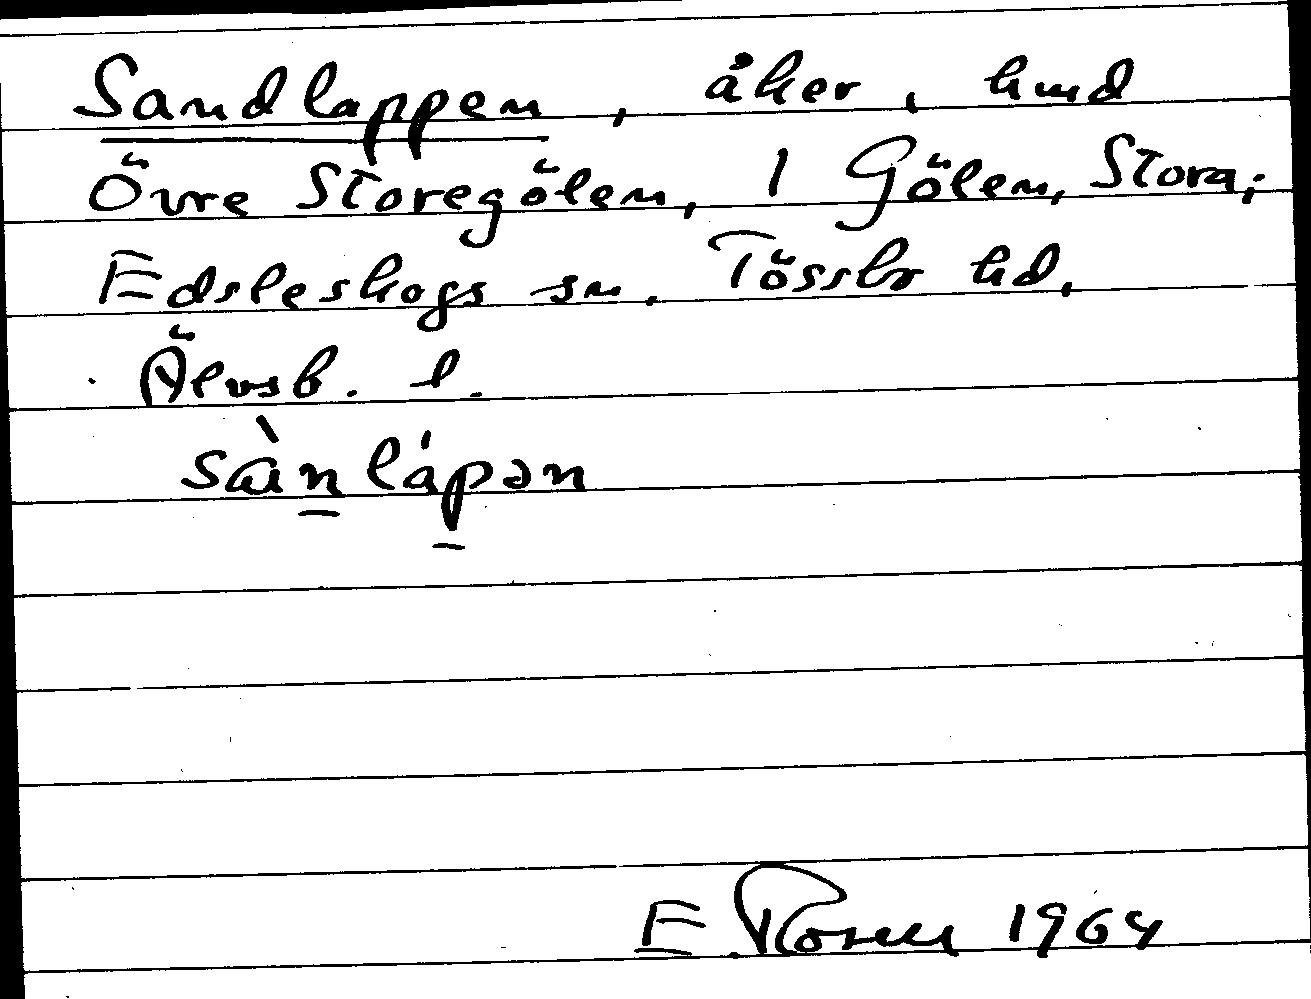 Sandlappen, åker, hmd
Övre Storegölen, 1 Gölen, Stora;
Edsleskogs sn. Tössbo hd.
Älvsb. l.
sàn lápən
E. Rosell 1964